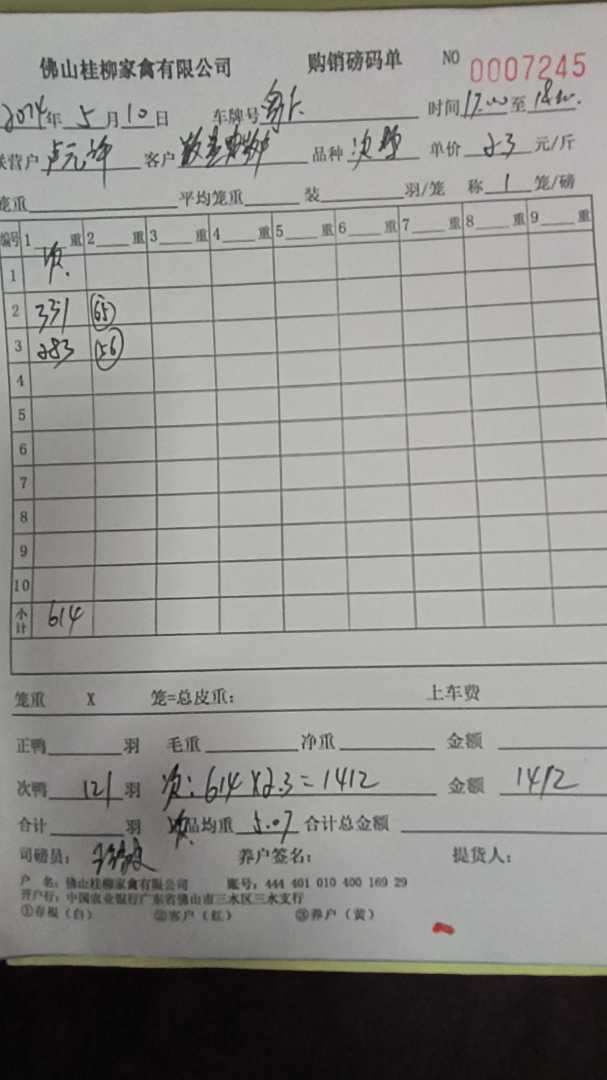 佛山桂柳家禽有限公司 购销磅码单 NO 0007245
2024年5月10日 车牌号 时间17:00至18:00.
联营户 卢元许 客户 品种 次鸭 单价 2.3 元/斤
笼重 平均笼重 装 羽/笼 称 1 笼/磅
编号 1 重 2 重 3 重 4 重 5 重 6 重 7 重 8 重 9 重
1 次.
2 331 65
3 283 56
4
5
6
7
8
9
10
小计 614
笼重 X 笼=总皮重: 上车费
正鸭 羽 毛重 净重 金额
次鸭 121 羽 次: 614×2.3=1412 金额 1412
合计 羽 次品均重 5.07 合计总金额
司磅员: 养户签名: 提货人:
户 名: 佛山桂柳家禽有限公司 账号: 444 401 010 400 169 29
开户行: 中国农业银行广东省佛山市三水区三水支行
①存根(白) ②客户(红) ③养户(黄)